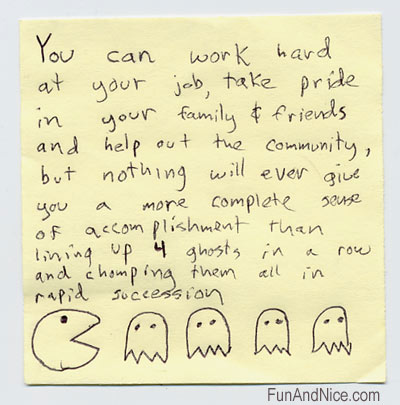 You can work hard
at your job, take pride
in your family & friends
and help out the community,
but nothing will ever give
you a more complete sense
of accomplishment than
lining up 4 ghosts in a row
and chomping them all in
rapid succession
FunAndNice.com